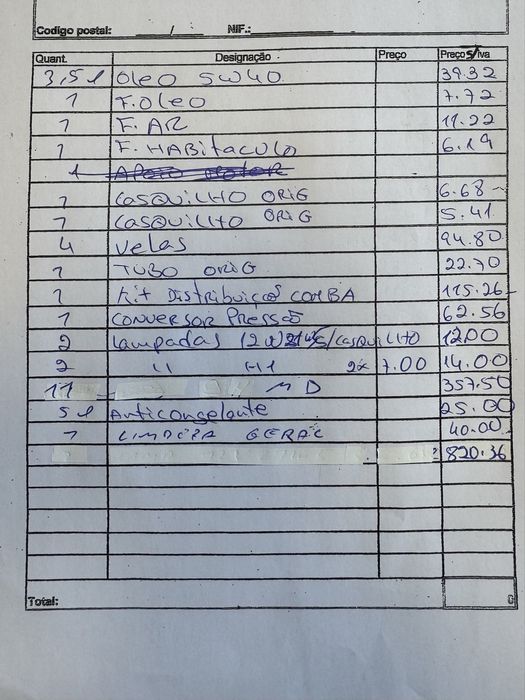 Codigo postal: ____/____ NIF.:__________
Quant. Designação Preço Preço S/iva
3,5 l Oleo 5W40 39.32
1 F. Oleo 7.72
1 F. AR 11.22
1 F. HABitaculo 6.19
1 Apoio Motor
1 CASQUILHO ORIG 6.68
1 CASQUILHO ORIG 5.41
4 Velas 94.80
1 TUBO ORIG 22.70
1 Kit Distribuiçaõ C/OMBA 115.26
1 CONVERSOR PRESSÃO 62.56
2 Lampadas 12V 21W S/CASQUILHO 12.00
2 " H1 2x 7.00 14.00
11 M D 357.50
5 l Anticongelante 25.00
1 LIMPEZA GERAL 40.00
820.36
Total: 0